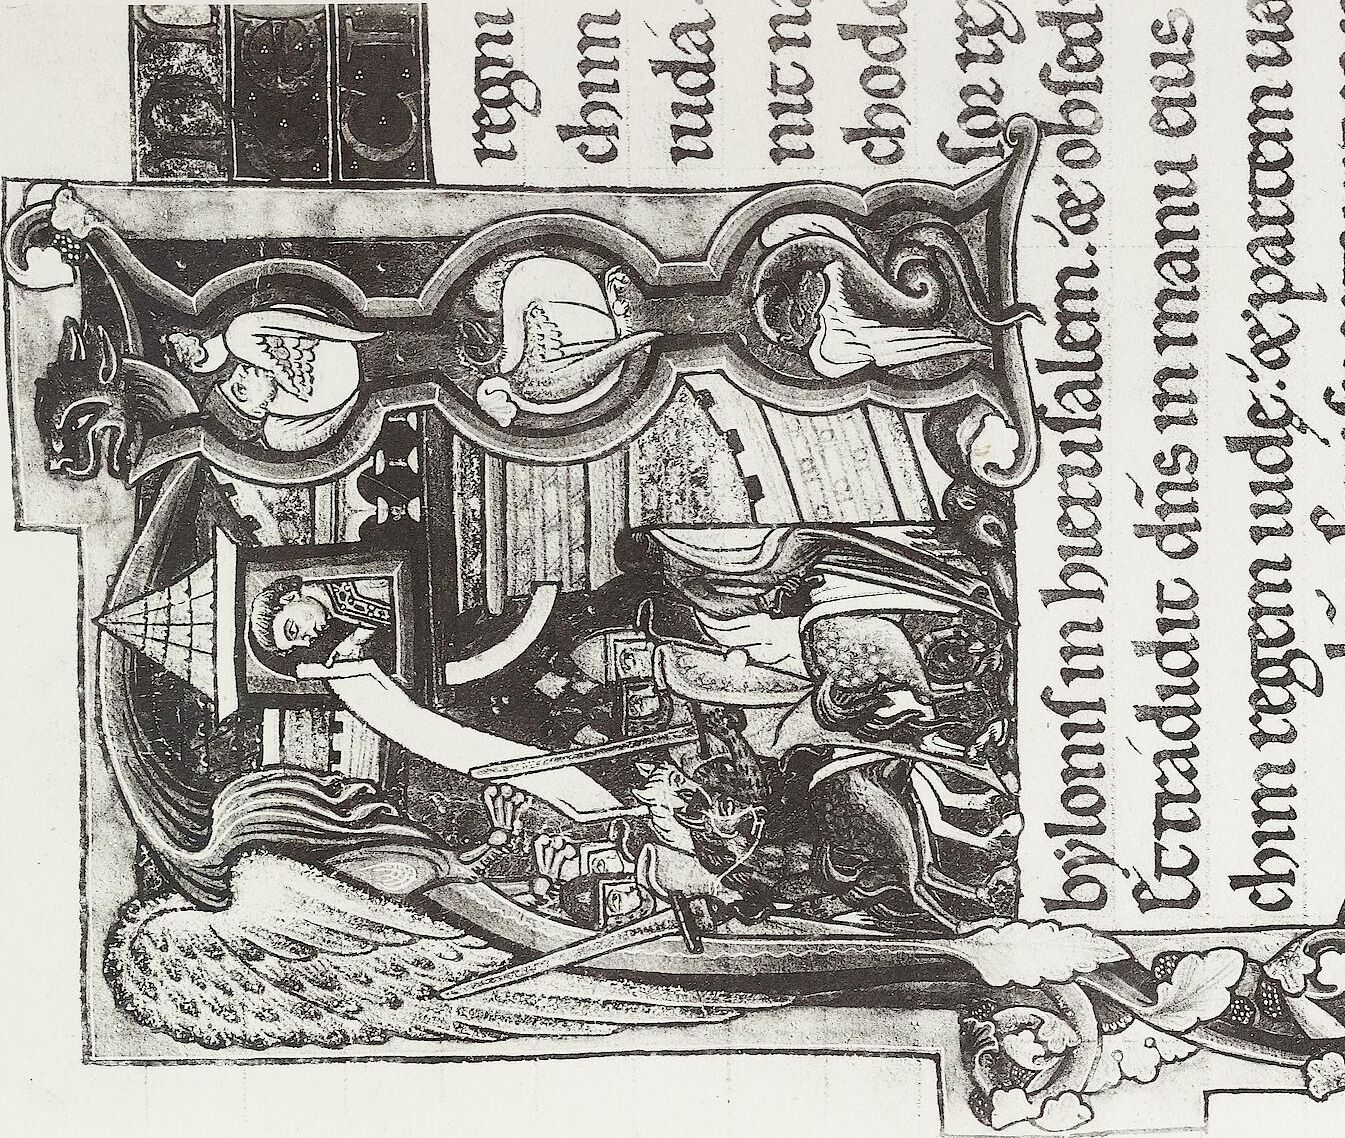 regni
chim
iuda
nit na
chodo
sor reg
bÿlonis in hierusalem. & obsedi
& tradidit dn̄s in manu eius
chim regem iudę. & partem ua